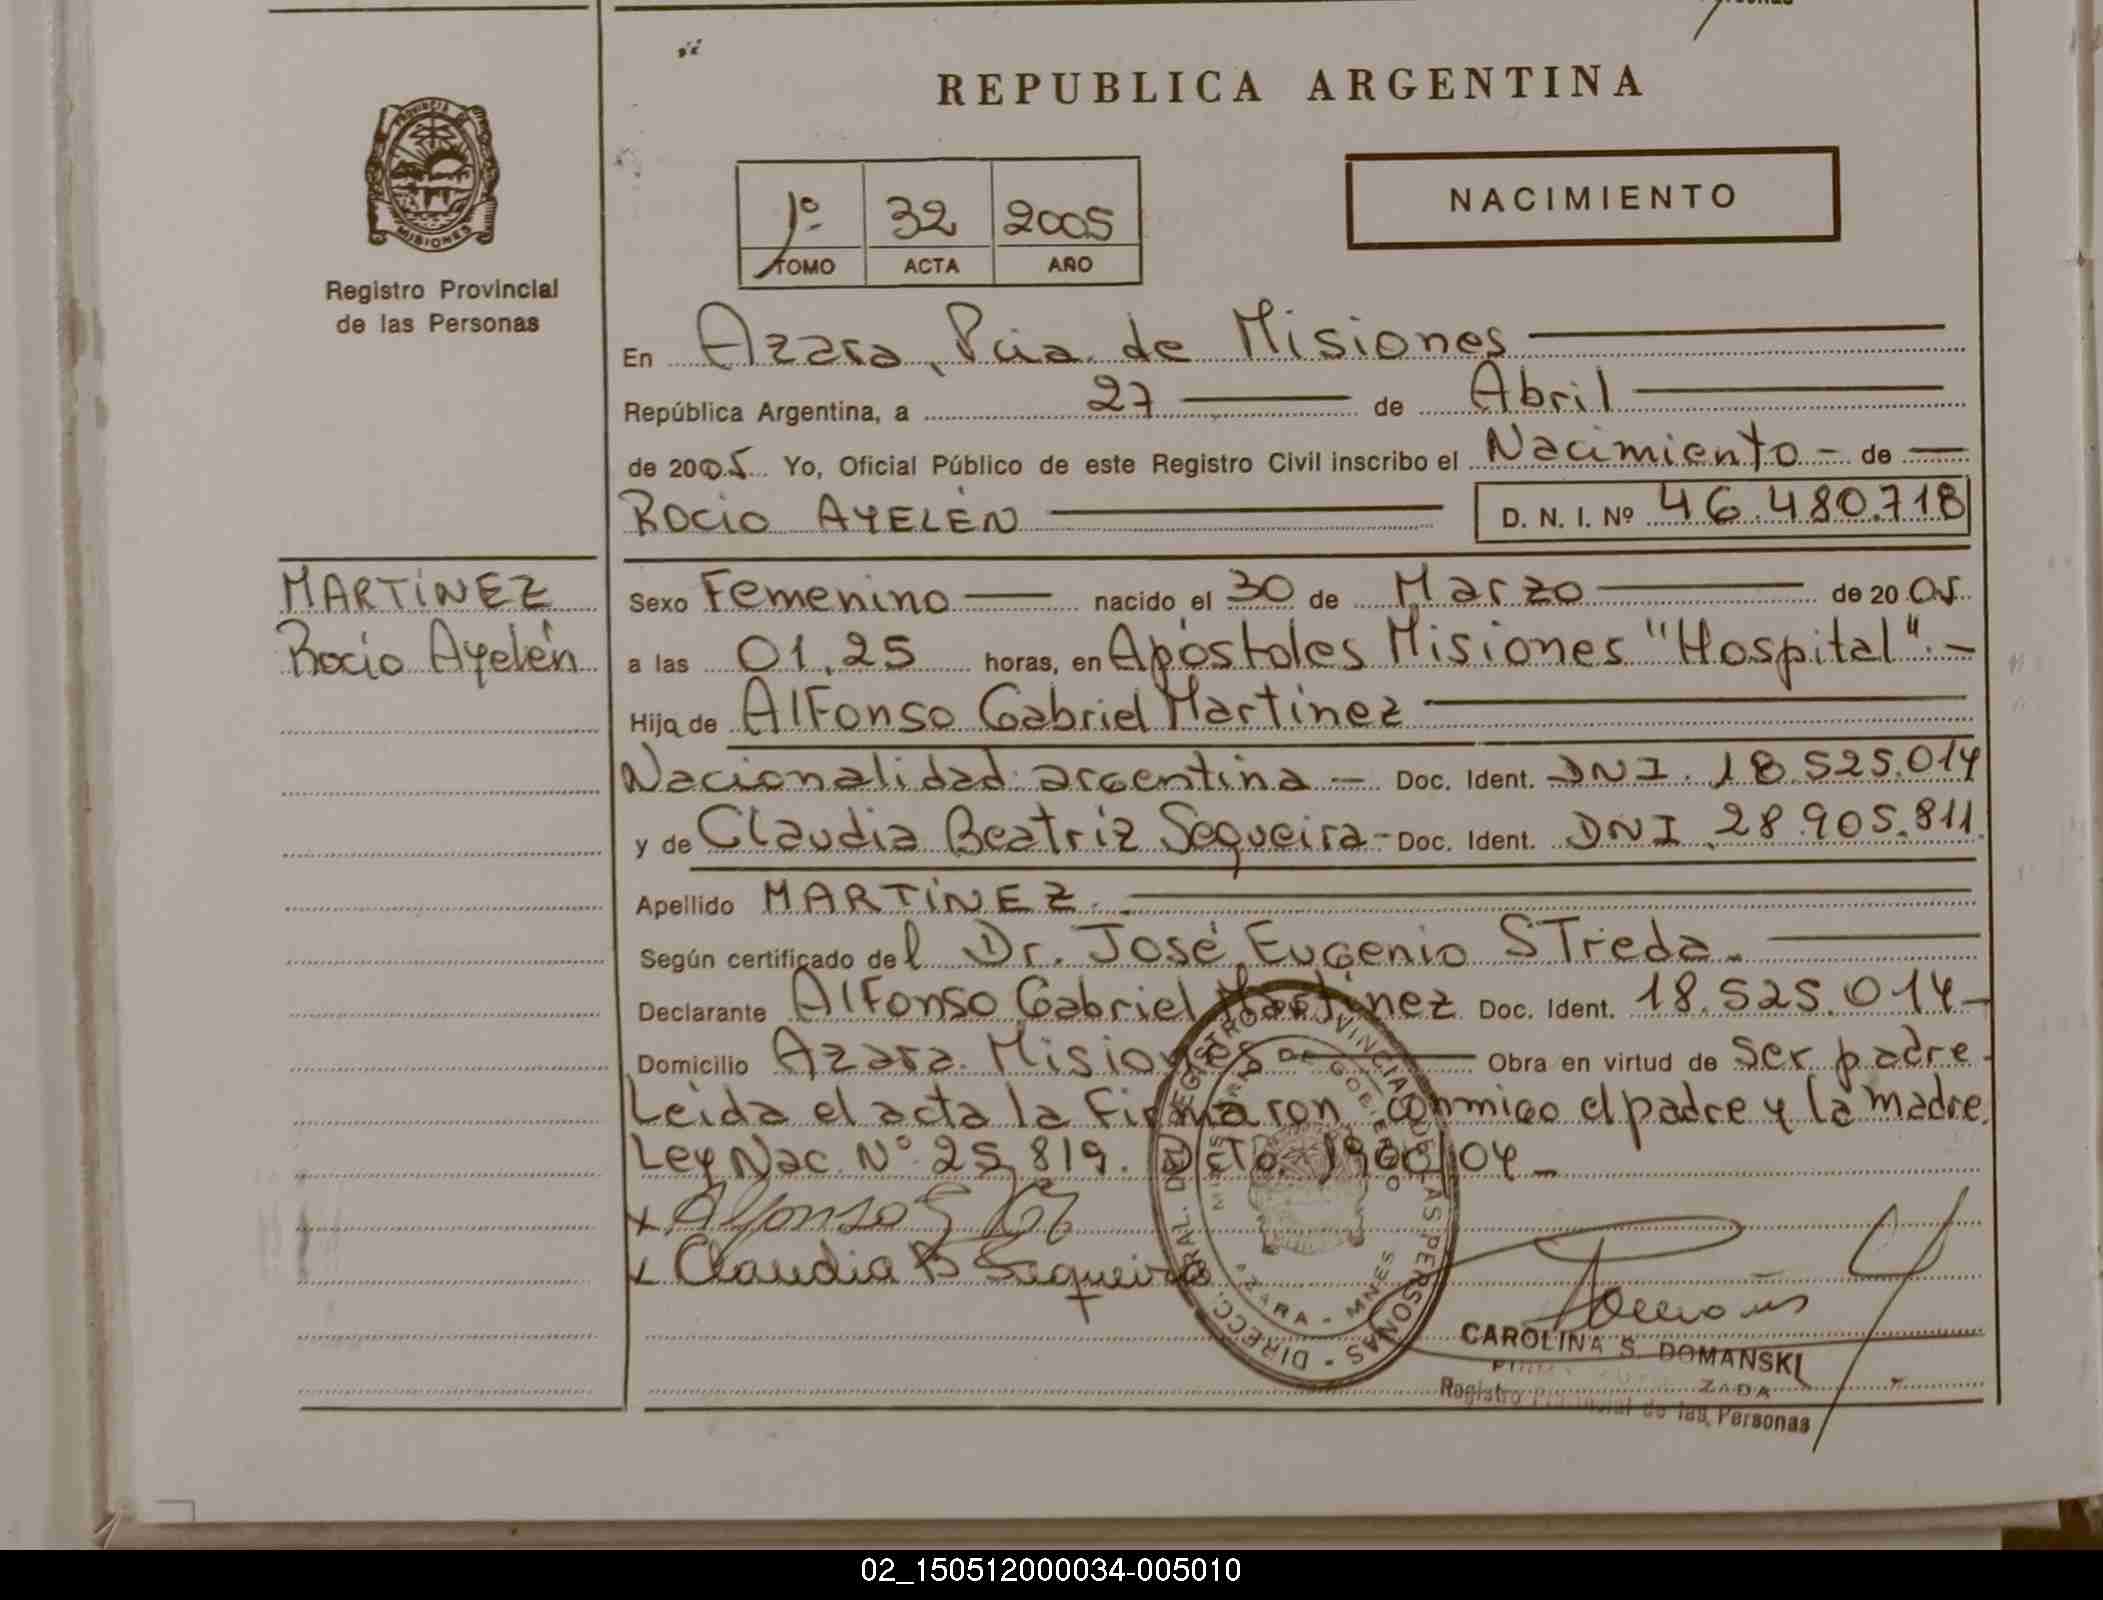 REPUBLICA ARGENTINA
PROVINCIA DE
MISIONES
Registro Provincial
de las Personas
1º 32 2005
TOMO ACTA AÑO
NACIMIENTO
En Azara, Pcia. de Misiones
República Argentina, a 27 de Abril
de 2005 Yo, Oficial Público de este Registro Civil inscribo el Nacimiento - de
ROCIO AYELÉN D. N. I. Nº 46.480.718
MARTÍNEZ
Rocio Ayelén
Sexo Femenino nacido el 30 de Marzo de 2005
a las 01,25 horas, en Apóstoles Misiones "Hospital".-
Hija de Alfonso Gabriel Martínez
Nacionalidad argentina - Doc. Ident. DNI. 18.525.014
y de Claudia Beatríz Sequeira - Doc. Ident. DNI. 28.905.811
Apellido MARTÍNEZ.
Según certificado del Dr. José Eugenio STreda.
Declarante Alfonso Gabriel Martínez Doc. Ident. 18.525.014-
Domicilio Azara. Misiones Obra en virtud de ser padre.
Leída el acta la firmaron conmigo el padre y la madre.
Ley Nac. Nº 25.819. Dcto. /04-
x Alfonso G
x Claudia B Sequeira
DIRECC. GRAL. DEL REGISTRO PROVINCIAL DE LAS PERSONAS
DE GOBIERNO
AZARA - MNES
CAROLINA S. DOMANSKI
Registro Provincial de las Personas
02_150512000034-005010